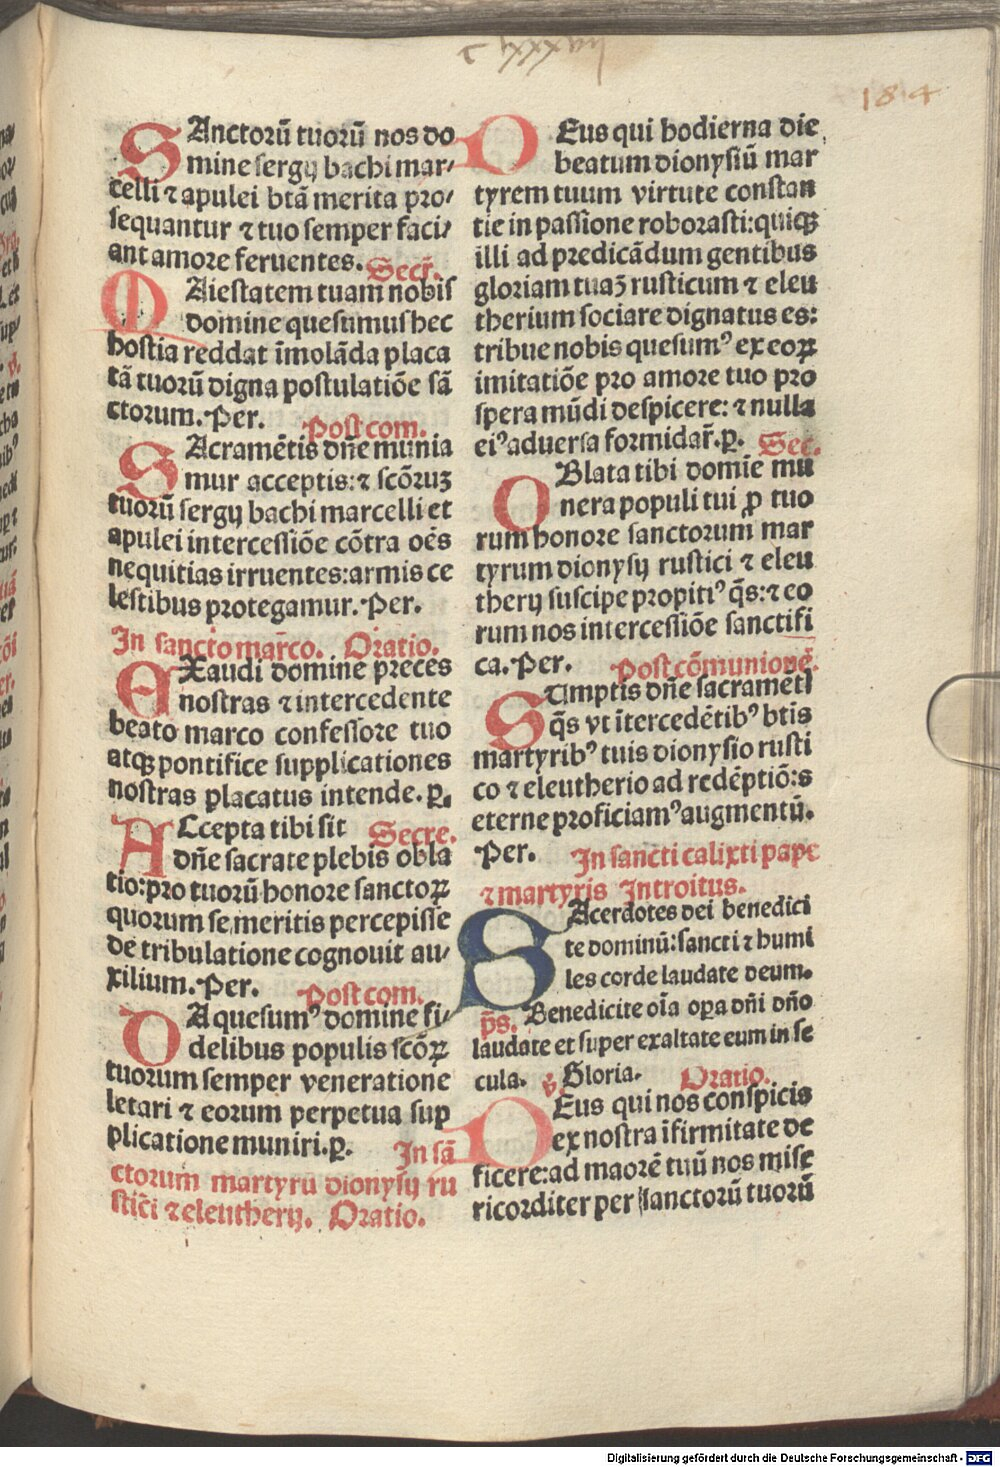 c lxxxvij
184
SAnctorū tuorū nos do
mine sergij bachi mar⸗
celli ⁊ apulei btā merita pro⸗
sequantur ⁊ tuo semper faci⸗
ant amore feruentes. Secr̄.
MAiestatem tuam nobis
domine quesumus hec
hostia reddat īmolāda placa
tā tuorū digna postulatiōe sā
ctorum. Per. Post com.
SAcramētis dn̄e munia
mur acceptis: ⁊ scōruʒ
tuorū sergij bachi marcelli et
apulei intercessiōe cōtra oēs
nequitias irruentes: armis ce
lestibus protegamur. Per.
In sancto marco. Oratio.
EXaudi domine preces
nostras ⁊ intercedente
beato marco confessore tuo
atqꝫ pontifice supplicationes
nostras placatus intende. p̱.
ACcepta tibi sit Secre.
dn̄e sacrate plebis obla
tio: pro tuorū honore sanctoꝝ
quorum se meritis percepisse
de tribulatione cognouit au⸗
xilium. Per. Post com.
DA quesumꝰ domine fi⸗
delibus populis scōꝝ
tuorum semper veneratione
letari ⁊ eorum perpetua sup
plicatione muniri. p̱. In sā
ctorum martyrū dionysij ru
stici ⁊ eleutherij. Oratio.
DEus qui hodierna die
beatum dionysiū mar
tyrem tuum virtute constan
tie in passione roborasti: quiqꝫ
illi ad predicādum gentibus
gloriam tuaʒ rusticum ⁊ eleu
therium sociare dignatus es:
tribue nobis quesumꝰ ex eoꝝ
imitatiōe pro amore tuo pro
spera mūdi despicere: ⁊ nulla
eiꝰ aduersa formidar̄. p̱. Sec.
OBlata tibi domīe mu
nera populi tui ꝓ tuo
rum honore sanctorum mar
tyrum dionysij rustici ⁊ eleu
therij suscipe propitiꝰ q̄s: ⁊ eo
rum nos intercessiōe sanctifi
ca. Per. Post cōmunionē.
SUmptis dn̄e sacramētis
q̄s vt ītercedētibꝰ btīs
martyribꝰ tuis dionysio rusti
co ⁊ eleutherio ad redēptiōis
eterne proficiamꝰ augmentū.
Per. In sancti calixti pape
⁊ martyris Introitus.
SAcerdotes dei benedici
te dominū: sancti ⁊ humi
les corde laudate deum.
p̄s. Benedicite oīa opa dn̄i dn̄o
laudate et super exaltate eum in se
cula. ꝟ. Gloria. Oratio.
DEus qui nos conspicis
ex nostra īfirmitate de
ficere: ad maorē tuū nos mise
ricorditer per sanctorū tuorū
Digitalisierung gefördert durch die Deutsche Forschungsgemeinschaft - DFG